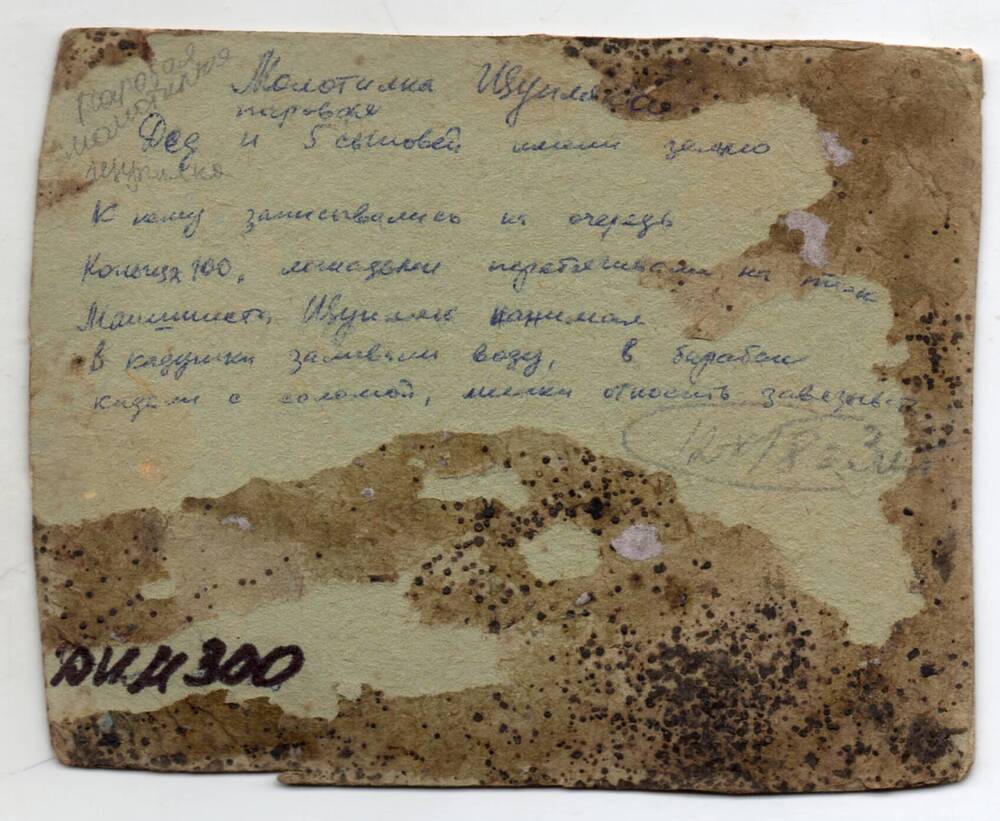 паровая
молотилка
Молотилка Щупляка
паровая
Дед и 5 сыновей имели землю
К нему записывались на очередь
100, лошадьми перетягивали на ток
Машиниста нанимал
В кадушки заливали воду, в барабан
кидали с соломой, мешки относить завязывать
12х18 =
ДИМ 300